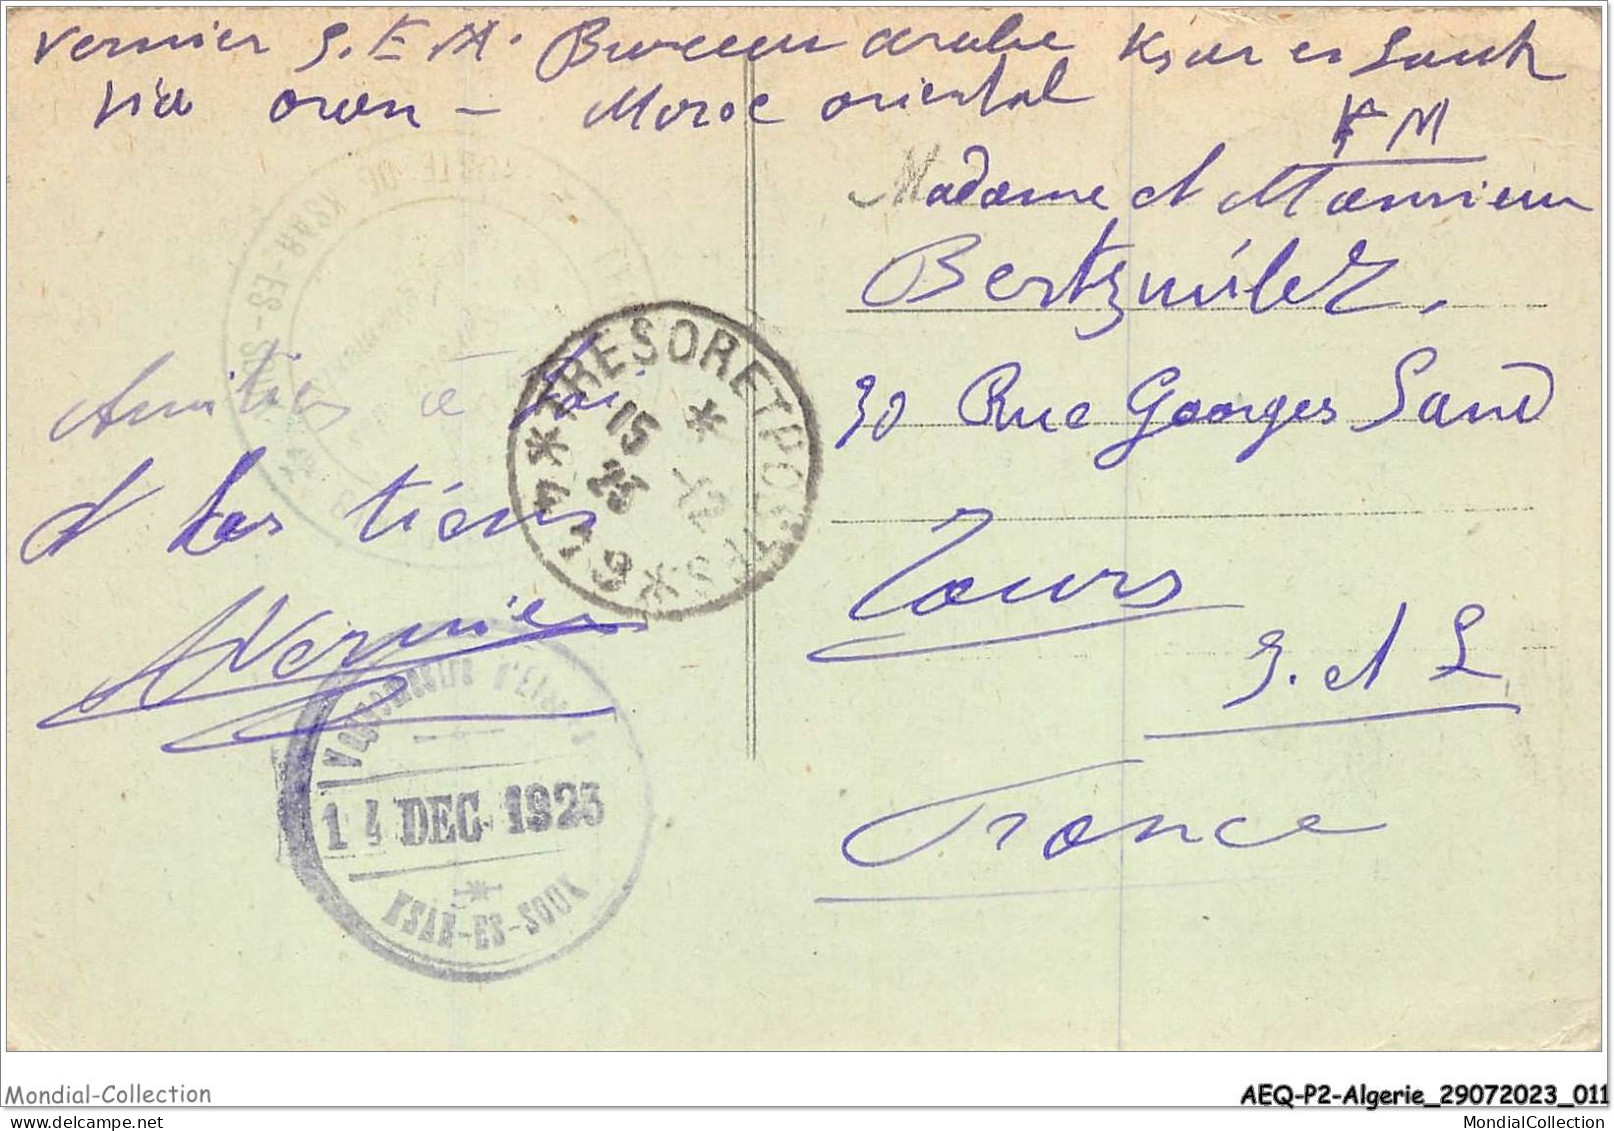 Vernier S.E.M. Bureau arabe Ksar es Souk
via oran – Maroc oriental
FM
Madame et Monsieur
Bertzmiller,
30 Rue Georges Sand
Tours
I. et L
France
Amitiés à toi
et les tiens
Vernier
*TRESOR ET POSTES*
619
*
15
-12
23
KSAR-ES-SOUK
d'Etapes
14 DEC. 1923
KSAR-ES-SOUK
Mondial-Collection
AEQ-P2-Algerie_29072023_011
www.delcampe.net
MondialCollection